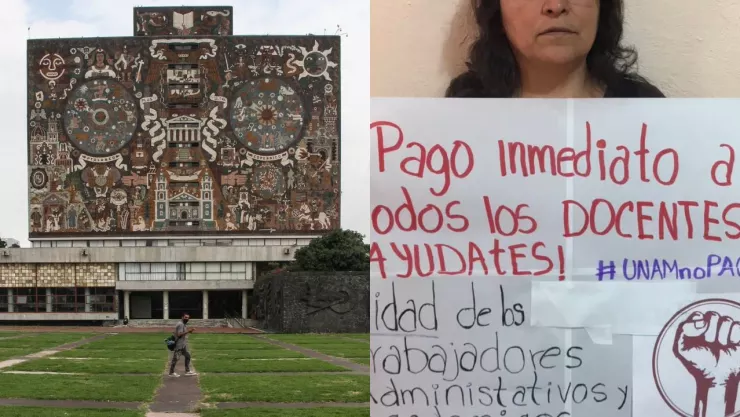 Pago inmediato a
odos los DOCENTES
AYUDAtES!
#UNAMnoPAG
idad de los
rabajadores
Administrativos y